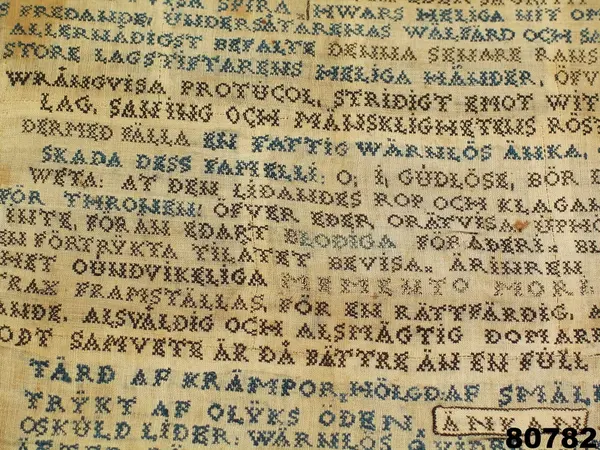 FREDANDE, UNDERSÅTARENAS WÄLFÄRD OCH
ALLERNÅDIGST BEFALTE DENNA SENARE RANS
STORE LAGSTIFTARENS HELIGA HÄNDER, ÖFV
WRÅNGVISA PROTUCOL, STRIDIGT EMOT WIT
LAG, SANING OCH MÄNSKLIGHETENS RÖS
DERMED FÄLLA EN FATTIG WÄRNLÖS ÄNKA,
SKADA DESS FAMELLI: O, I, GUDLÖSE, BÖR
WETA: AT DEN LIDANDES ROP OCH KLAGAN
FÖR THRONEN ÖFVER EDER ORÄTVISA. UPH
INTE, FÖRÄN EDART BLODIGA FÖRÄDERI: BE
EN FÖRTRYKTA TILATET BEVISA. ÄRINREN
HET OUNDVIKELIGA MEMENTO MORI.
TRAX FRAMSTÄLLAS, FÖR EN RÄTTFÄRDIG, A
ANDE. ALSVÅLDIG OCH ALSMÄGTIG DOMAR
ODT SAMVETE ÄR DÅ BÄTTRE ÄN EN FULL
TÄRD AF KRÄMPOR, HÖLGD AF SMÄL
TRYKT AF OLYKS ÖDEN, ÄNKAN
OSKULD LIDER: WÄRNLÖS
80782